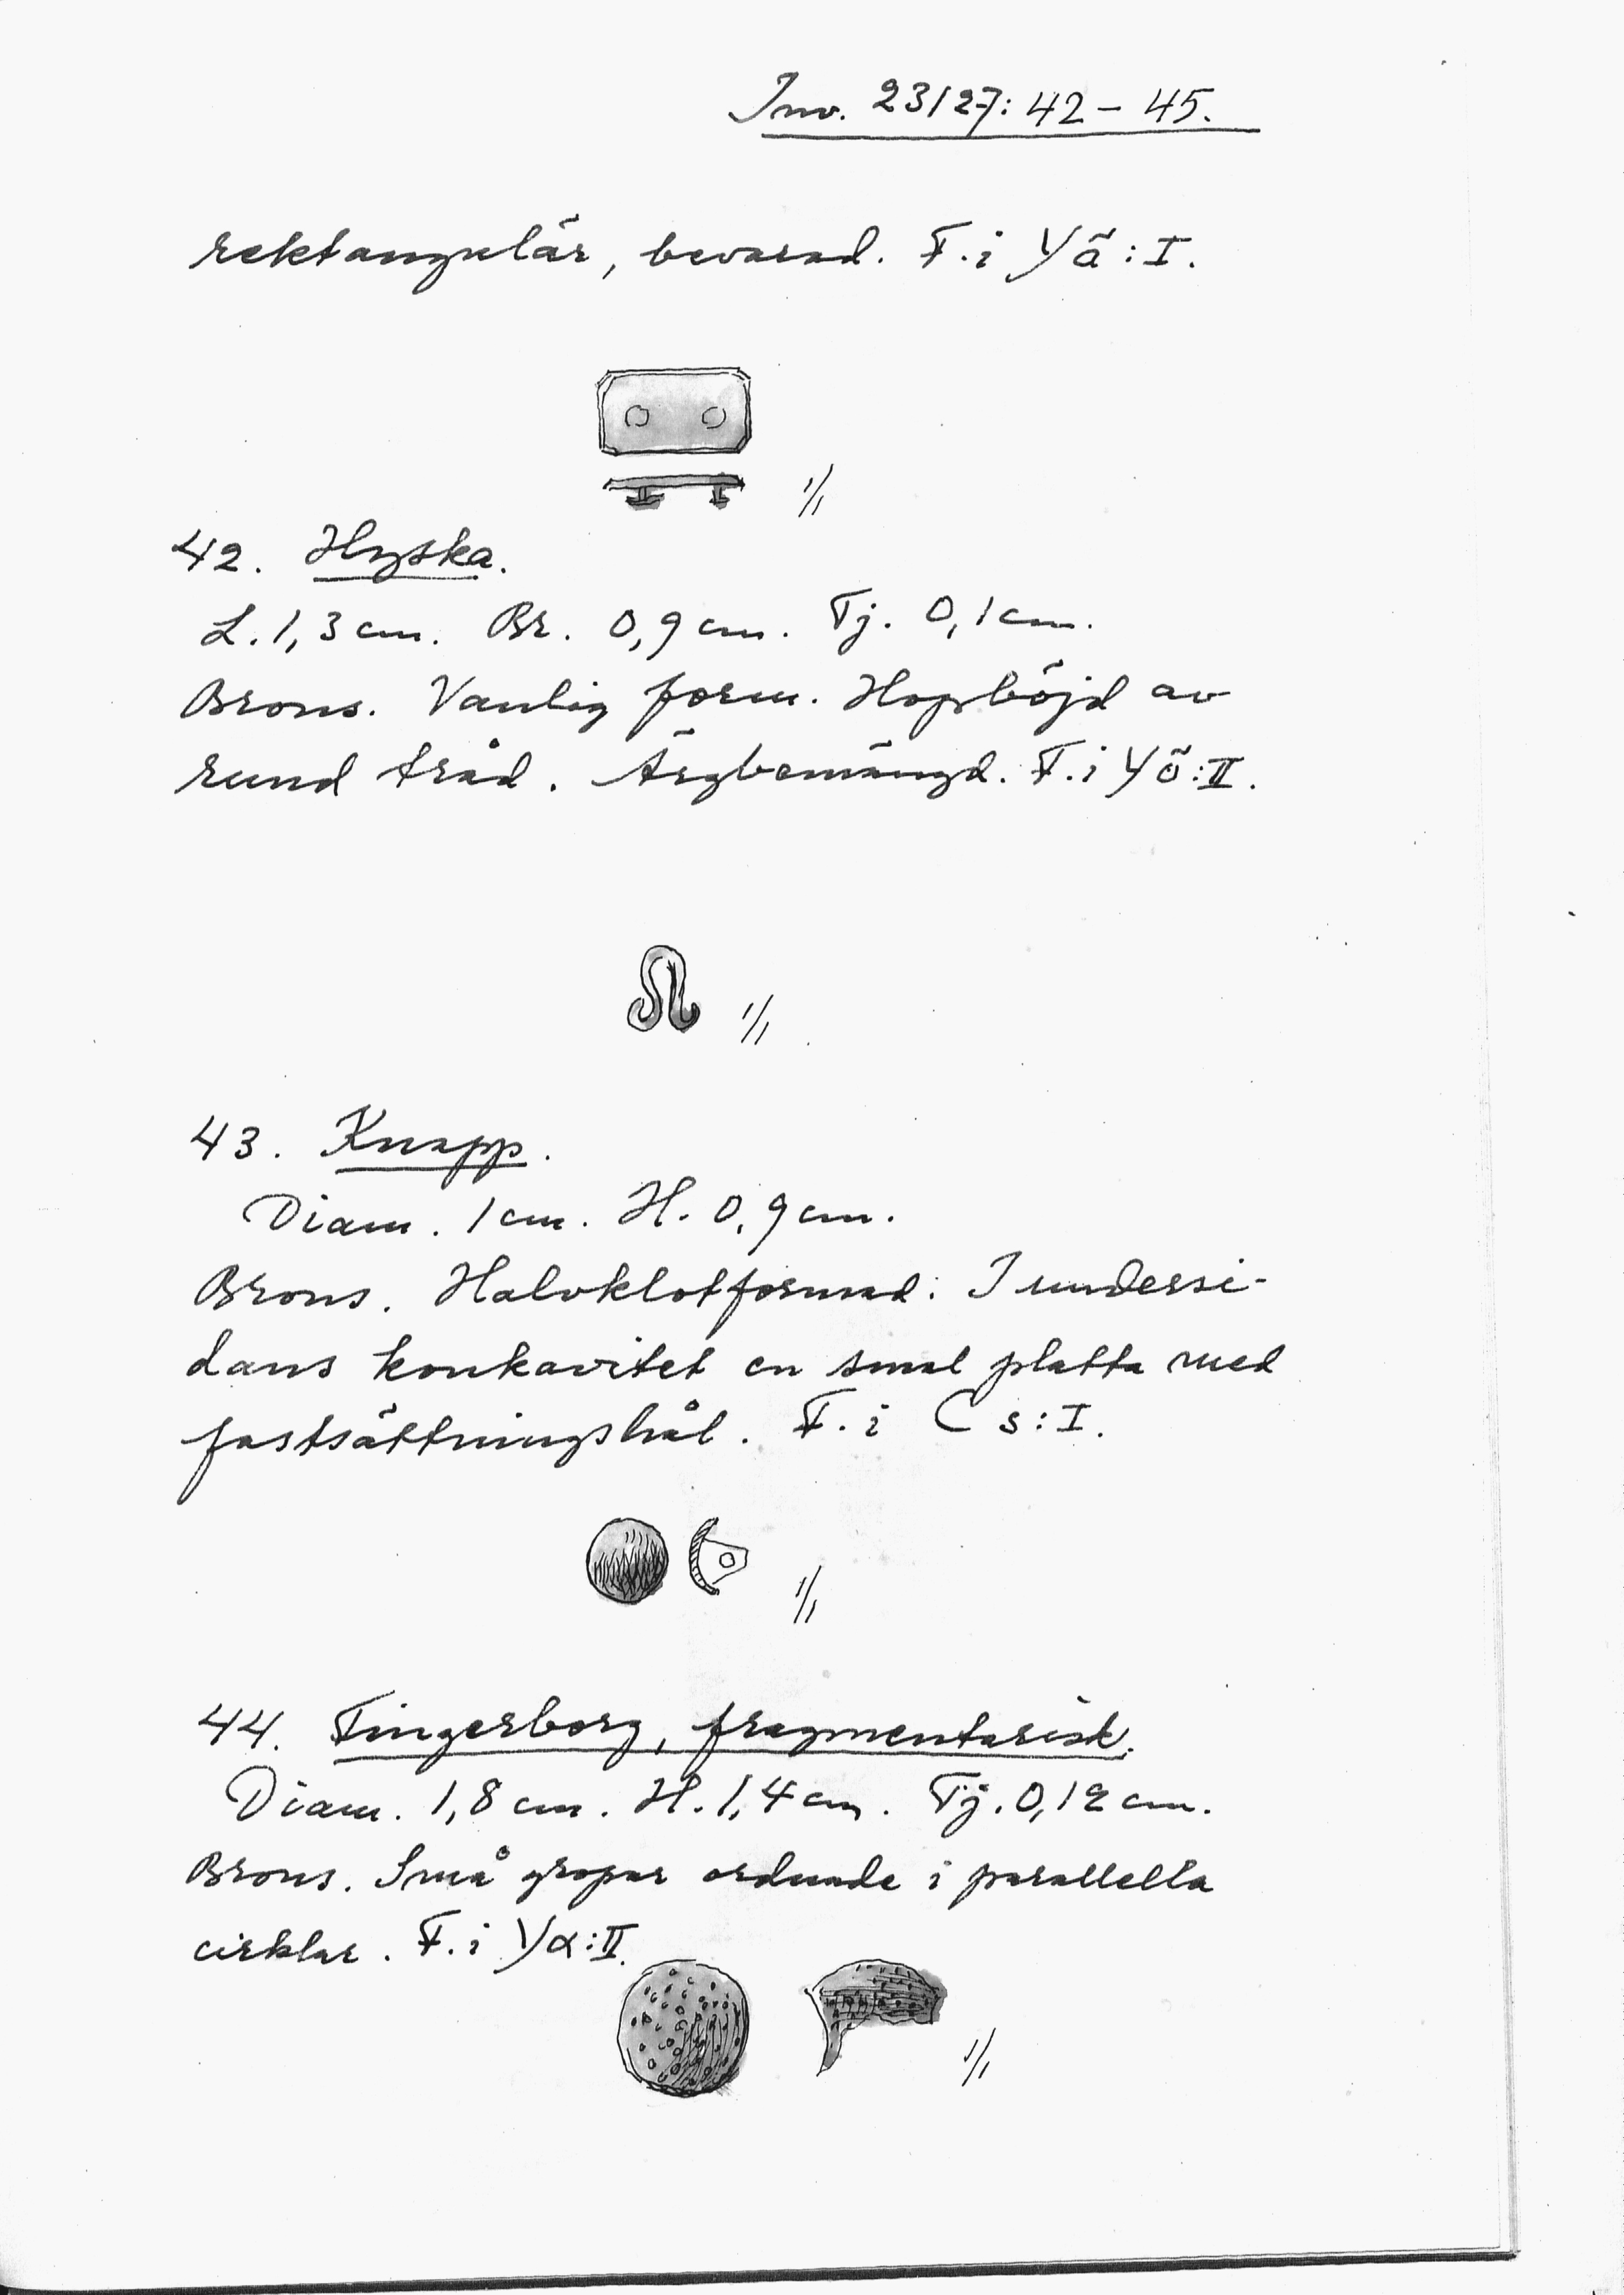 Inv. 23127: 42 - 45.
rektangulär, bevarad. F. i Yä: I.
1/1
42. Hyska.
L. 1,3 cm. Br. 0,9 cm. Tj. 0,1 cm.
Brons. Vanlig form. Hopböjd av
rund tråd. Ärgbemängd. F. i Yö: II.
1/1
43. Knapp.
Diam. 1 cm. H. 0,9 cm.
Brons. Halvklotformad. I undersi-
dans konkavitet en smal platta med
fastsättningshål. F. i Cs: I.
1/1
44. Fingerborg, fragmentarisk.
Diam. 1,8 cm. H. 1,4 cm. Tj. 0,12 cm.
Brons. Små gropar ordnade i parallella
cirklar. F. i Yα: II.
1/1